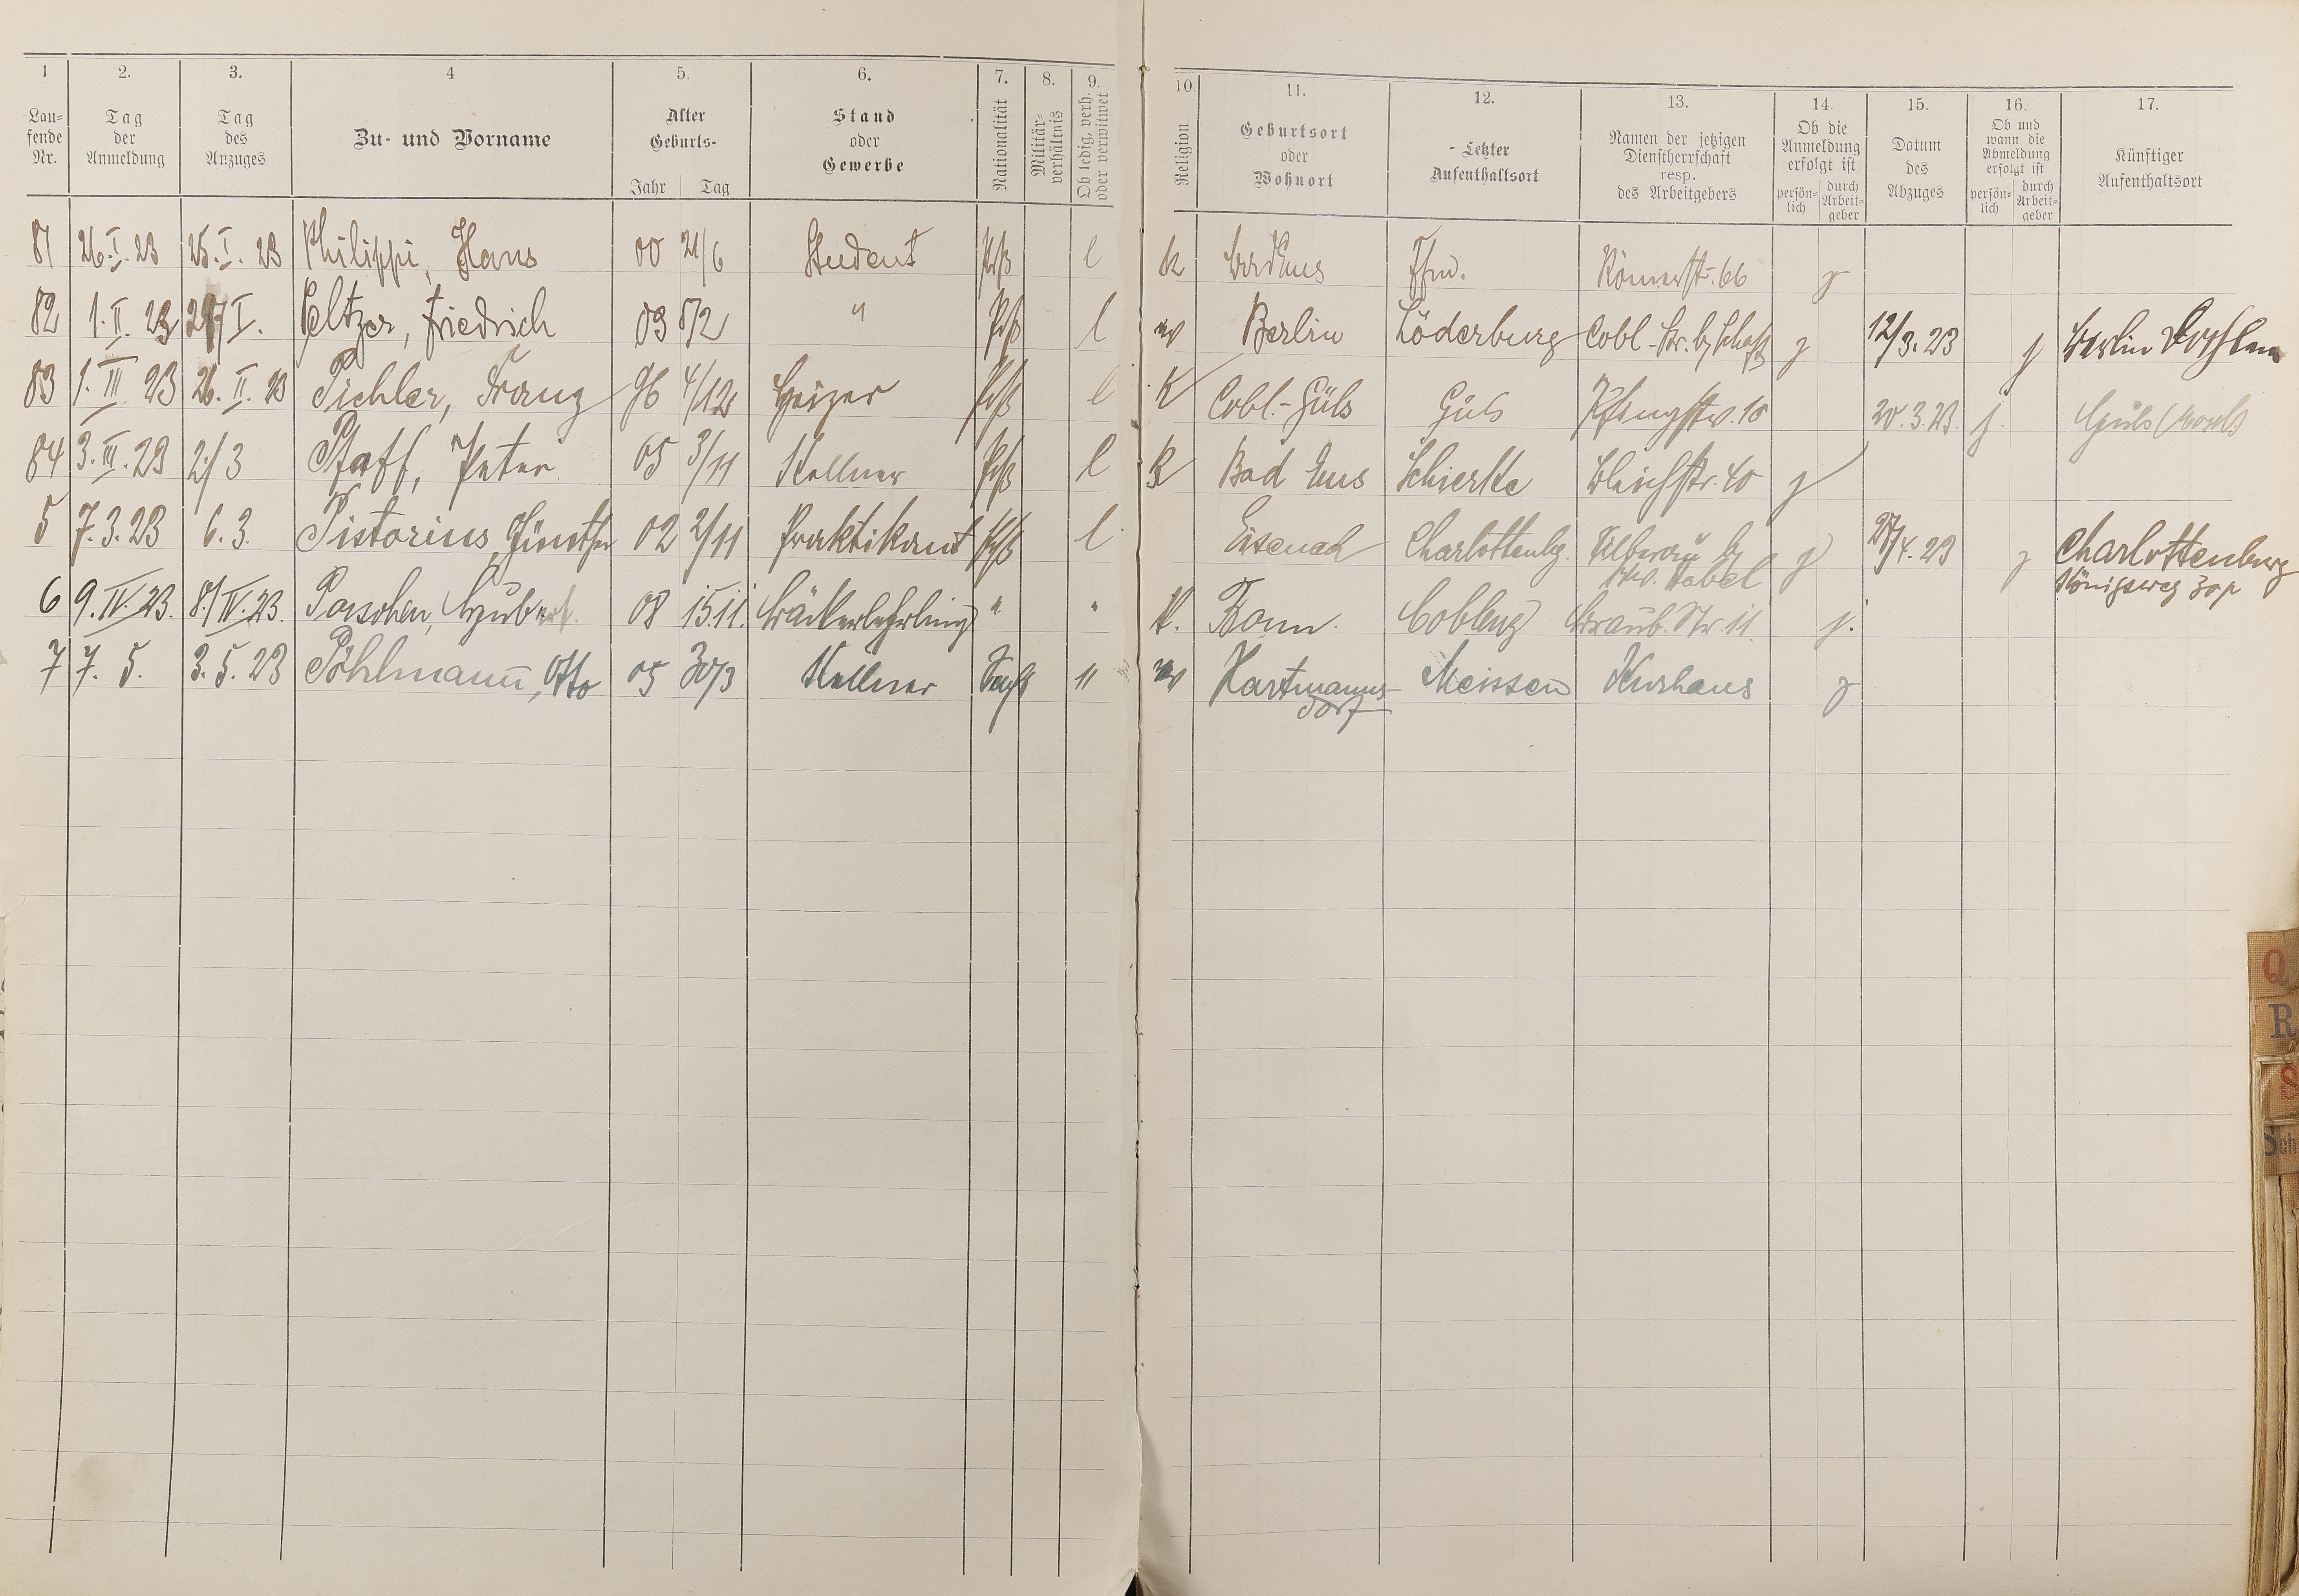 1 2. 3. 4 5. 6. 7. 8. 9. 10 11. 12. 13. 14. 15. 16. 17.
Lau-
fende
Nr.
Tag
der
Anmeldung
Tag
des
Anzuges
Zu- und Vorname
Alter
Geburts-
Jahr Tag
Stand
oder
Gewerbe
Nationalität
Militär-
verhältnis
Ob ledig, verh.
oder verwitwet
Religion
Geburtsort
oder
Wohnort
Letzter
Aufenthaltsort
Namen der jetzigen
Dienstherrschaft
resp.
des Arbeitgebers
Ob die
Anmeldung
erfolgt ist
persön-
lich
durch
Arbeit-
geber
Datum
des
Abzuges
Ob und
wann die
Abmeldung
erfolgt ist
persön-
lich
durch
Arbeit-
geber
Künftiger
Aufenthaltsort
81 26.I.23 25.I.23 Philippi, Hans 00 21/6 Student Prß l K Bad Ems Ffm. Römerstr. 66 j
82 1.II.23 I. Peltzer, Friedrich 03 5/2 " Prß l ev Berlin Löderburg Cobl-Str. b/ Schaft j 12/3.23 j Berlin
83 1.III.23 26.II.23 Pichler, Franz 96 4/12 Heizer Prß l K Cobl.-Güls Güls 20.3.23. j. Güls (Mosel)
84 3.III.23 2/3 Pfaff, Peter 05 3/11 Kellner Prß l K Bad Ems Schierke Bleichstr. 40 j
5 7.3.23 6.3. Pistorius, Günther 02 2/11 Praktikant Prß l. Eisenach Charlottenbg. j 27/4.23 j Charlottenburg
Königsweg
6 9.IV.23. 8./IV.23. Paschen, Hubert. 08 15.11. Bäckerlehrling " " K. Bonn. Coblenz Braub. Str. 11. j.
7 7. 5. 3.5.23 Pöhlmann, Otto 05 30/3 Kellner Sachs " ev Hartmanns-
dorf
Meissen Kurhaus j
Q
R
S
Sch